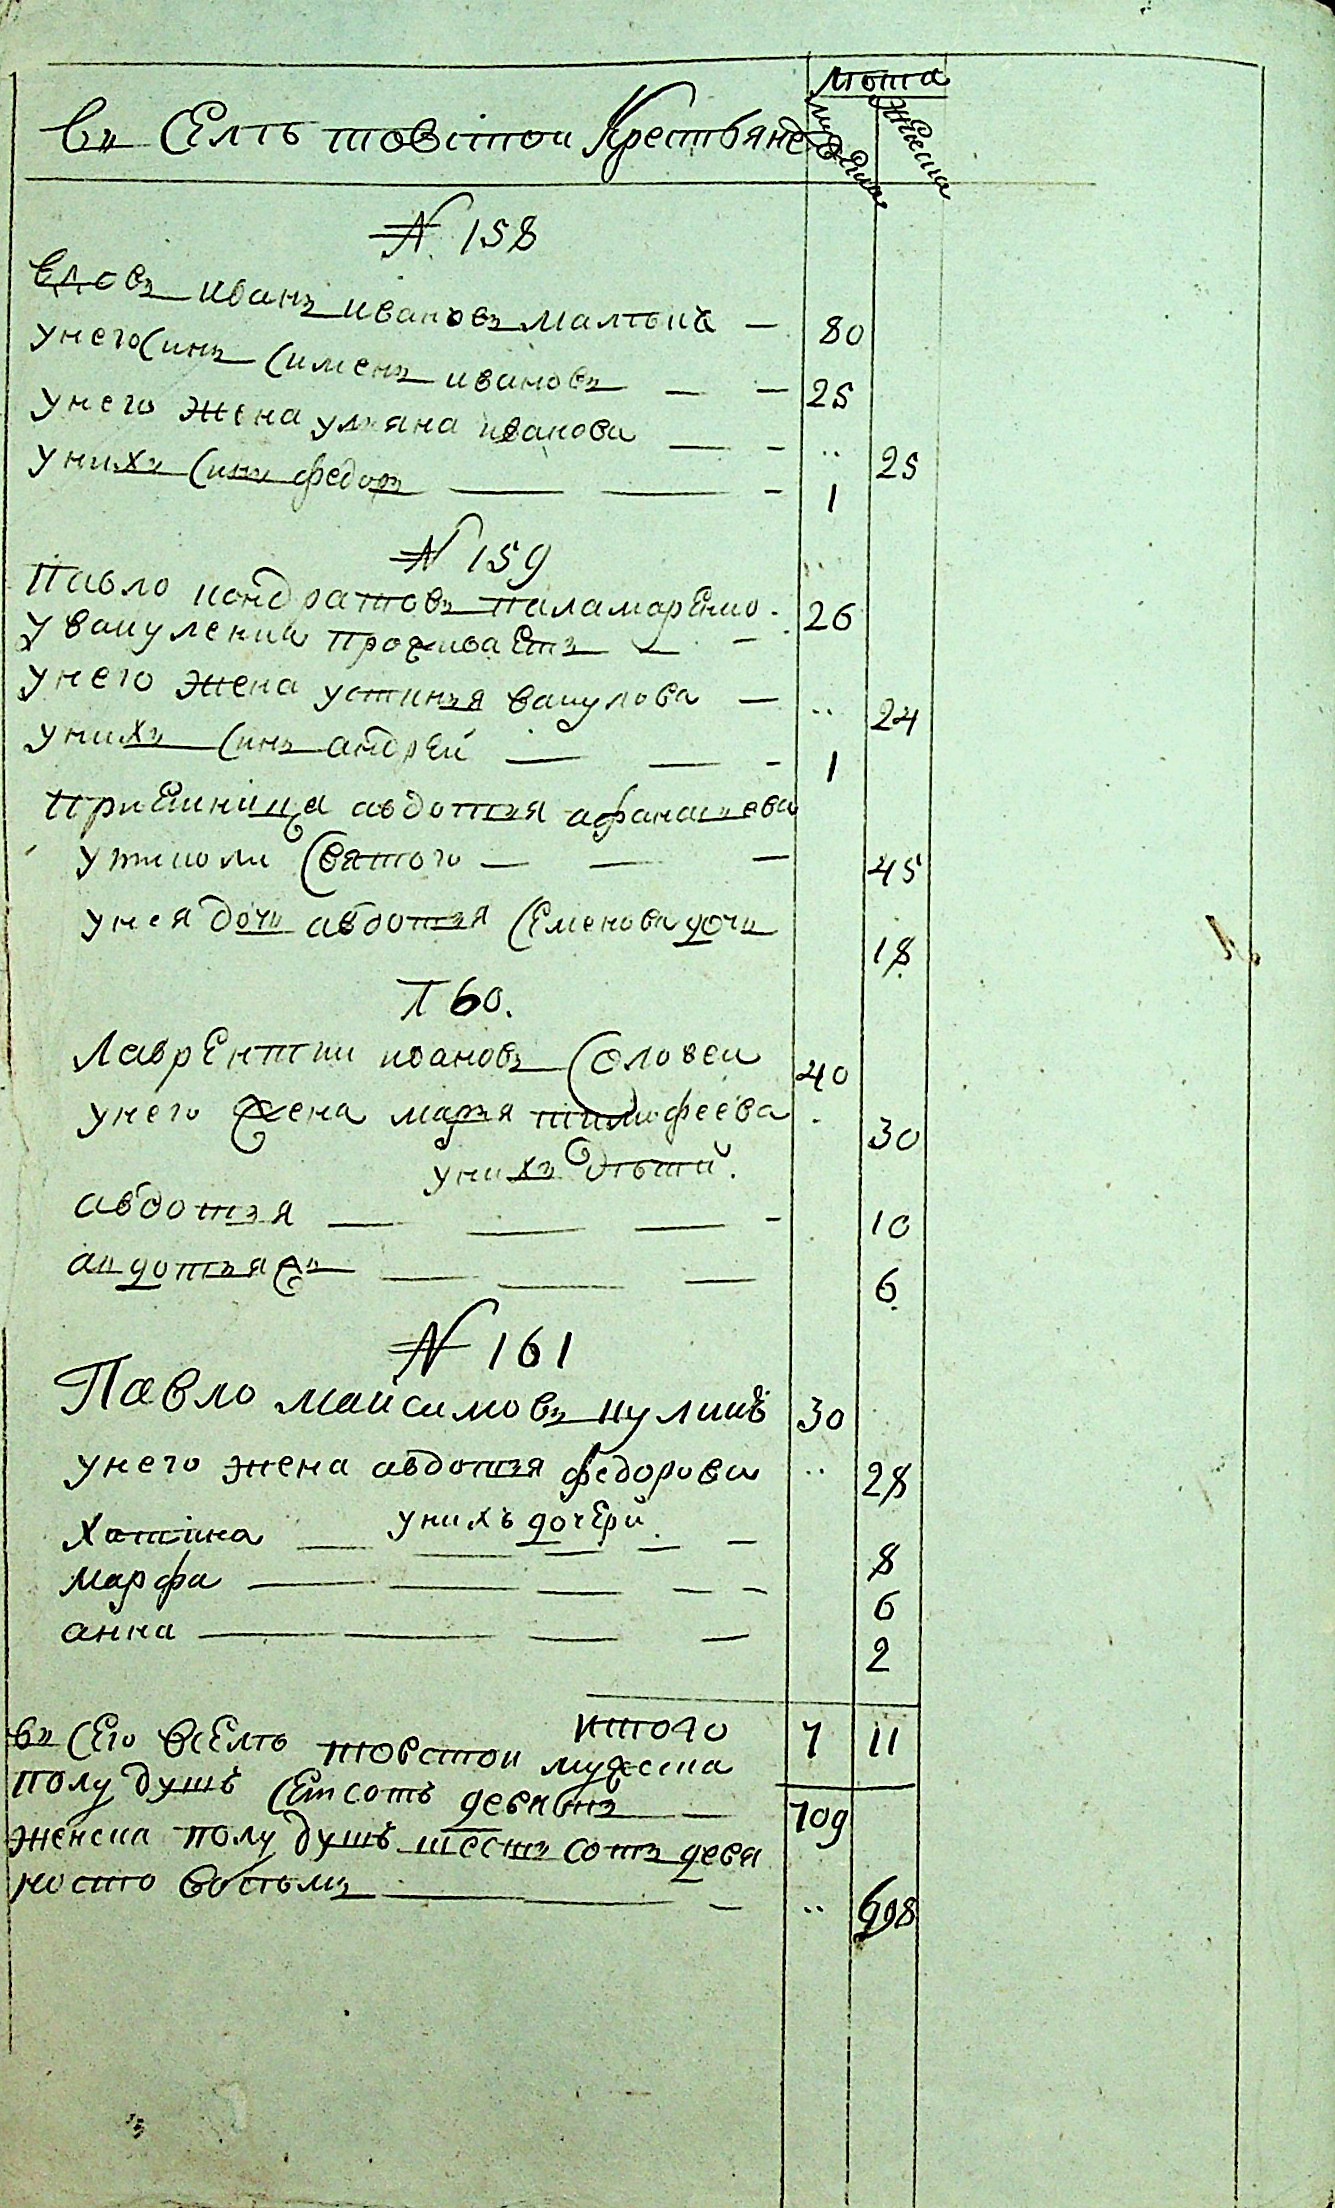 лѣта
въ Селѣ товстой Крестьяне мужеска женска
№ 158
вдовъ иванъ ивановъ малѣика — 80
у него Синъ Сименъ ивановъ — — 25
у него жена улияна иванова — - .. 25
у нихъ Синъ федоръ — — - 1
№ 159
Павло кондратовъ паламаренко - 26
у вакуленка проживаетъ — -
у него жена устинья вакулова — .. 24
у нихъ Синъ андрей — — - 1
авдотья афанасиева
у школи Святого — — — 45
у нея дочь авдотья Семенова дочь 18
160.
Лаврентий ивановъ Соловей 40
у него жена марья тимофеева . 30
у нихъ дѣтй.
авдотья — — — - 10
авдотья — — — 6
№ 161
Павло максимовъ куликъ 30
у него жена авдотья федорова .. 28
у нихъ дочерй.
— — — — — 8
марфа — — — — - 6
анна — — — — 2
итого 7 11
въ Сего вселѣ товстой мужеска
полу душъ Семсотъ девять — 709
женска полу душъ шесть сотъ девя
носто восьмъ — — - .. 698